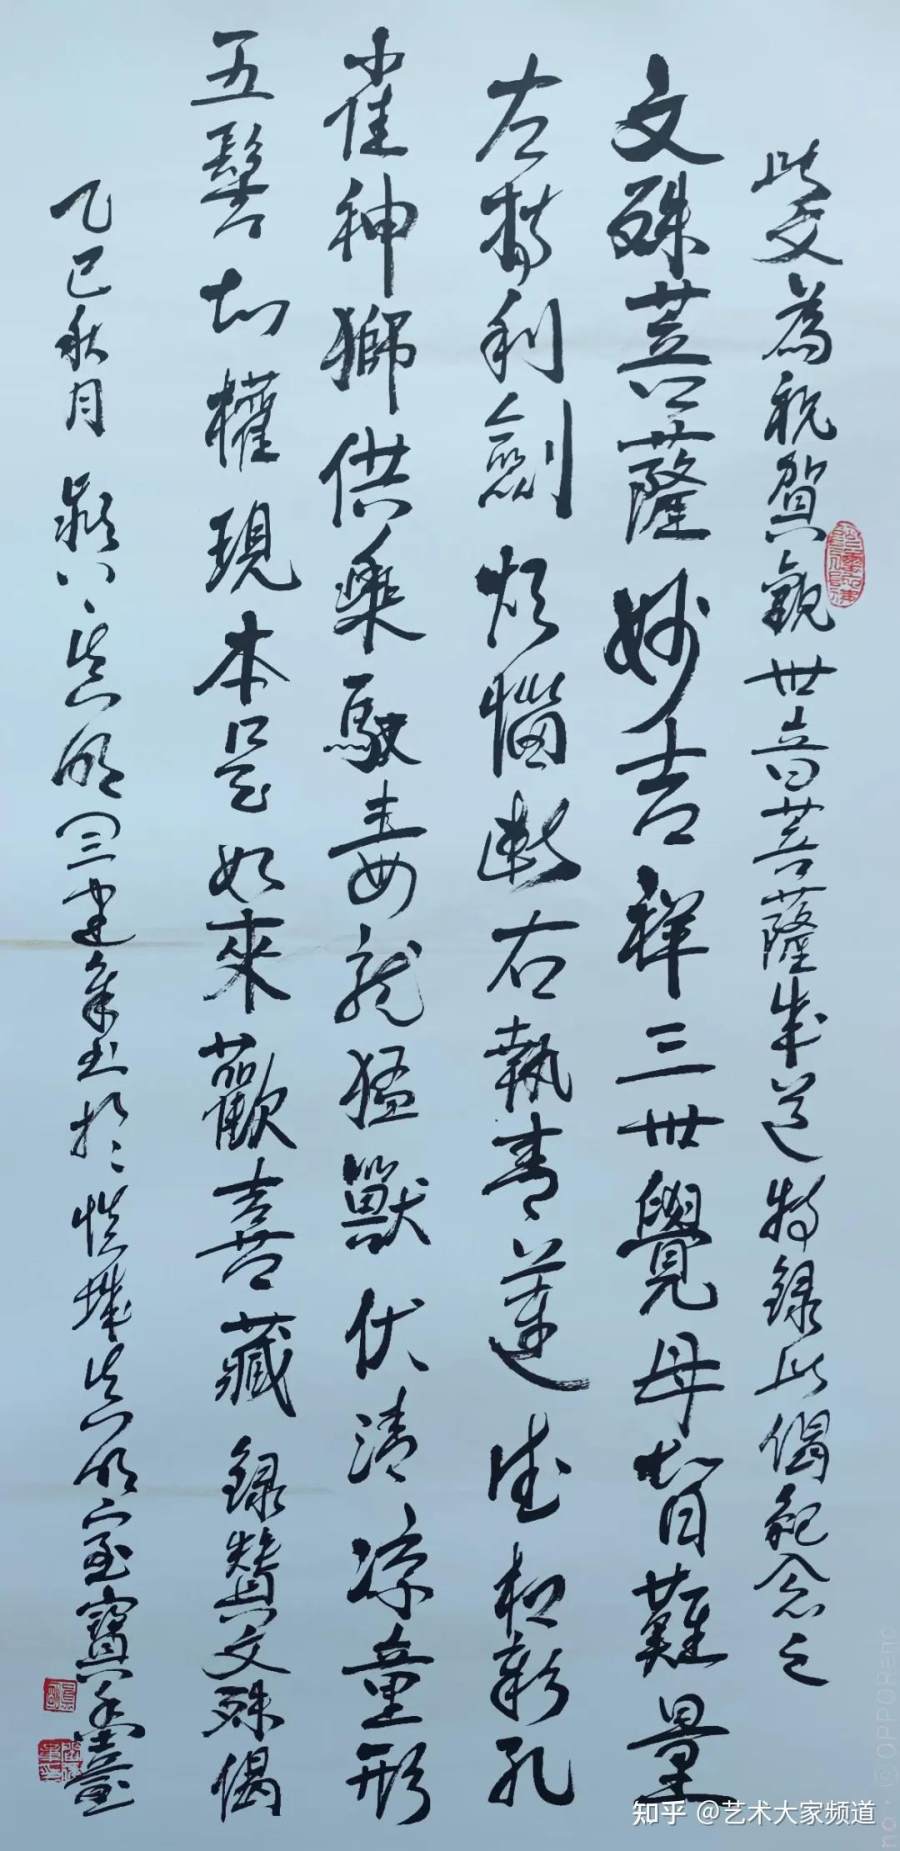 此文為祝賀觀世音菩薩成道特録此偈紀念之
文殊菩薩妙吉祥三世覺母智難量
左揚利劍煩惱斷右執青蓮法相彰孔
雀神獅供乘馭毒龍猛獸伏清涼童形
五髻知權現本是如來歡喜藏録贊文殊偈
乙巳秋月
知乎 @艺术大家频道